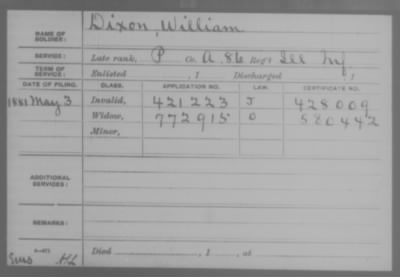 NAME OF SOLDIER: Dixon, William
SERVICE: Late rank, P Co. A. 86 Reg't Ill Inf.
TERM OF SERVICE: Enlisted , 1 Discharged , 1
DATE OF FILING. CLASS. APPLICATION NO. LAW. CERTIFICATE NO.
1881 May 3 Invalid, 421223 J 428009
Widow, 772915 O 580442
Minor,
ADDITIONAL SERVICES:
REMARKS:
Died , 1 , at